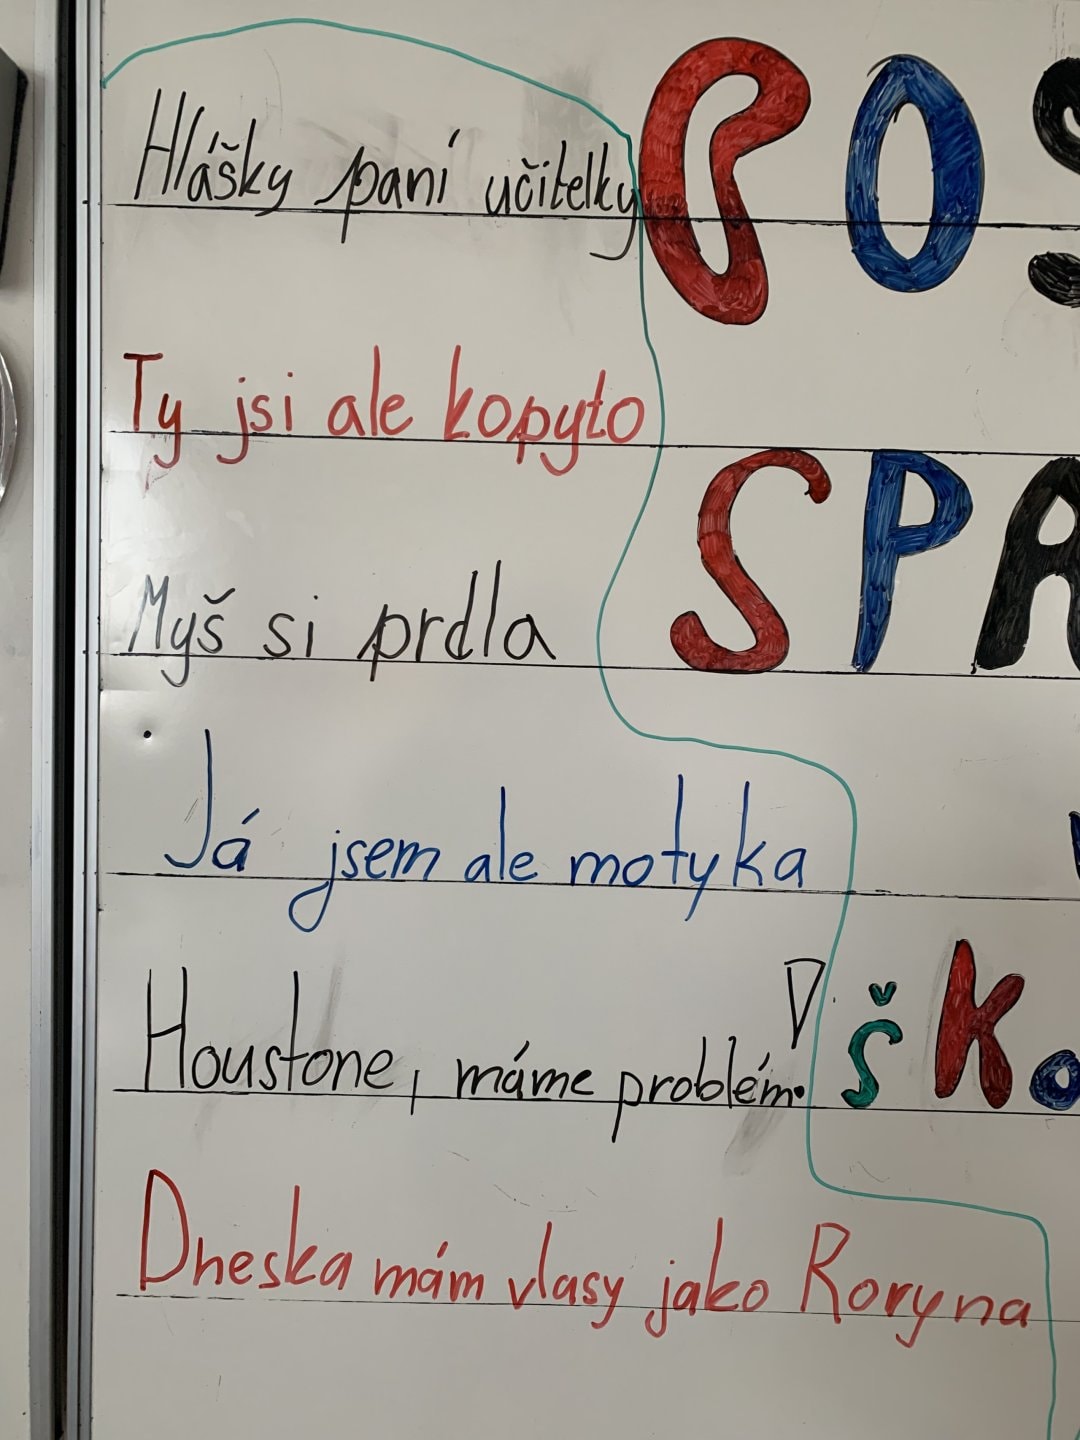 Hlášky paní učitelky
POS
Ty jsi ale kopyto
SPA
Myš si prdla
Já jsem ale motyka
Houstone, máme problém!
ŠKo
Dneska mám vlasy jako Roryna